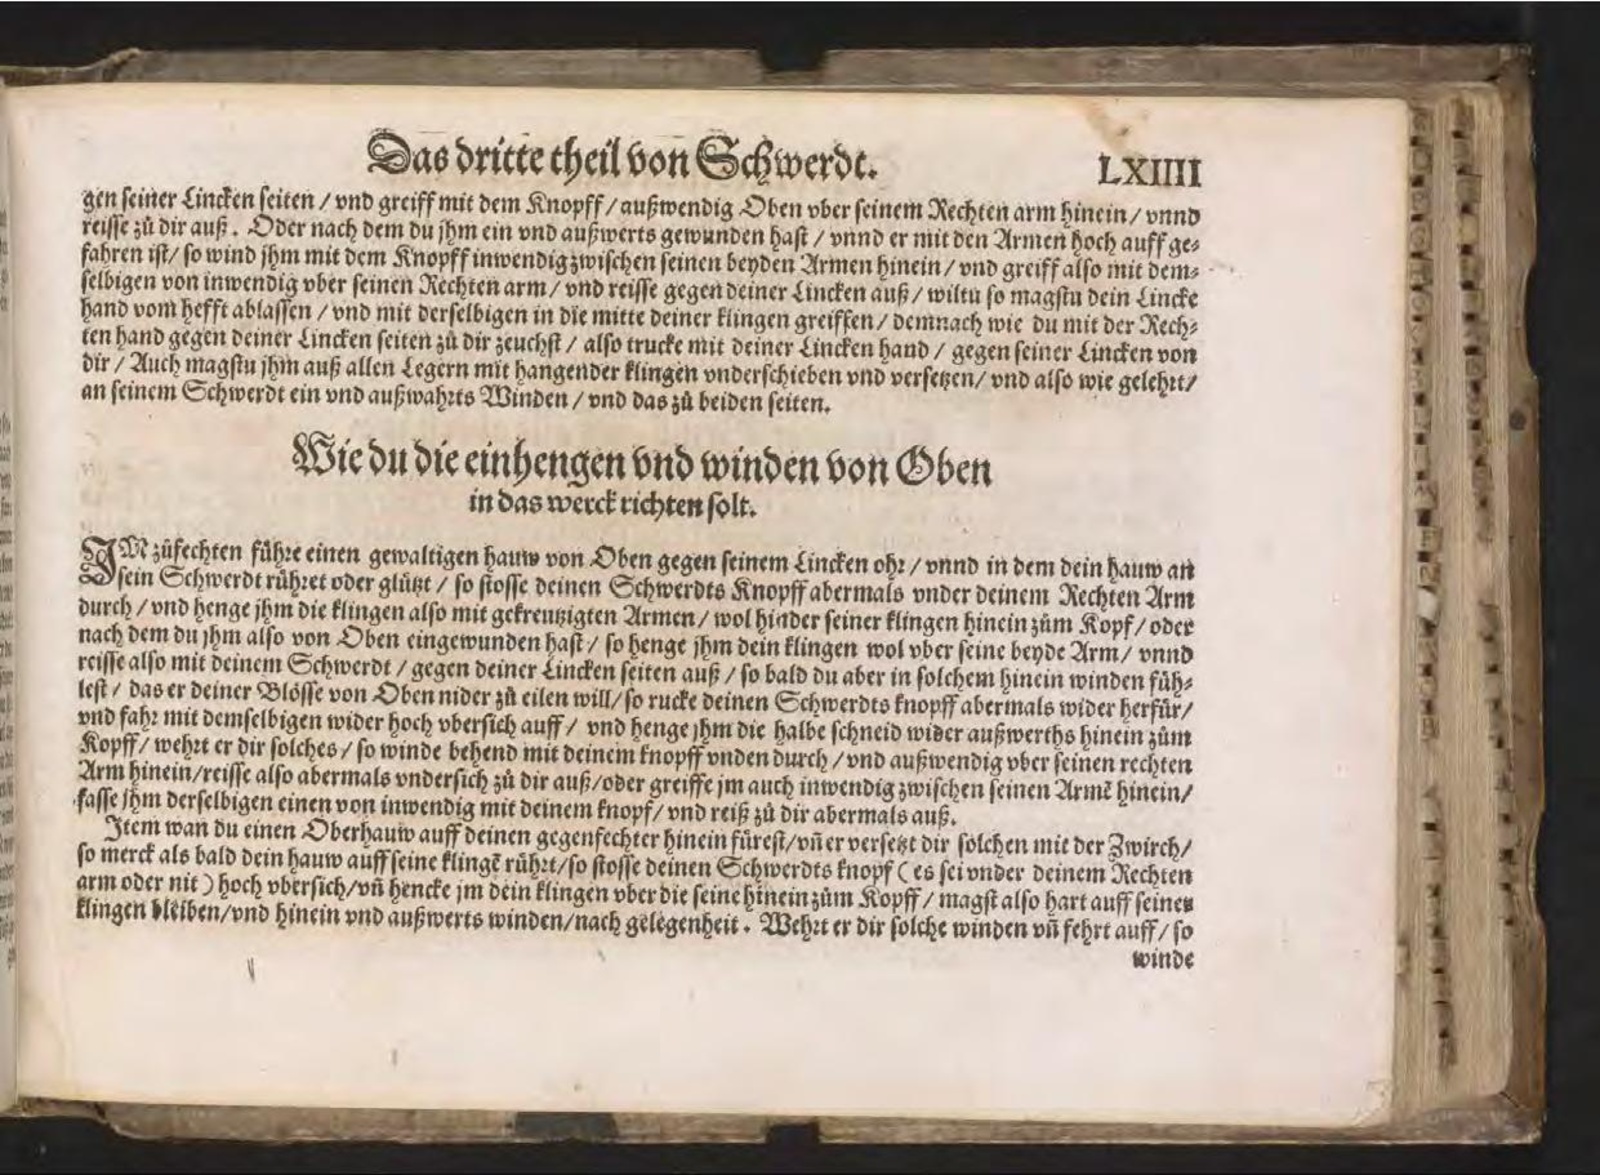 Das dritte theil von Schwerdt. LXIIII
gen seiner Lincken seiten / vnd greiff mit dem Knopff / außwendig Oben vber seinem Rechten arm hinein / vnnd
reisse zů dir auß. Oder nach dem du jhm ein vnd außwerts gewunden hast / vnnd er mit den Armen hoch auff ge⸗
fahren ist / so wind jhm mit dem Knopff inwendig zwischen seinen beyden Armen hinein / vnd greiff also mit dem⸗
selbigen von inwendig vber seinen Rechten arm / vnd reisse gegen deiner Lincken auß / wiltu so magstu dein Lincke
hand vom hefft ablassen / vnd mit derselbigen in die mitte deiner klingen greiffen / demnach wie du mit der Rech⸗
ten hand gegen deiner Lincken seiten zů dir zeuchst / also trucke mit deiner Lincken hand / gegen seiner Lincken von
dir / Auch magstu jhm auß allen Legern mit hangender klingen vnderschieben vnd versetzen / vnd also wie gelehrt /
an seinem Schwerdt ein vnd außwahrts Winden / vnd das zů beiden seiten.
Wie du die einhengen vnd winden von Oben
in das werck richten solt.
IM zůfechten führe einen gewaltigen hauw von Oben gegen seinem Lincken ohr / vnnd in dem dein hauw an
sein Schwerdt rühret oder glützt / so stosse deinen Schwerdts Knopff abermals vnder deinem Rechten Arm
durch / vnd henge jhm die klingen also mit gekreutzigten Armen / wol hinder seiner klingen hinein zům Kopf / oder
nach dem du jhm also von Oben eingewunden hast / so henge jhm dein klingen wol vber seine beyde Arm / vnnd
reisse also mit deinem Schwerdt / gegen deiner Lincken seiten auß / so bald du aber in solchem hinein winden füh⸗
lest / das er deiner Blösse von Oben nider zů eilen will / so rucke deinen Schwerdts knopff abermals wider herfür /
vnd fahr mit demselbigen wider hoch vbersich auff / vnd henge jhm die halbe schneid wider außwerths hinein zům
Kopff / wehrt er dir solches / so winde behend mit deinem knopff vnden durch / vnd außwendig vber seinen rechten
Arm hinein / reisse also abermals vndersich zů dir auß / oder greiffe jm auch inwendig zwischen seinen Armē hinein /
fasse jhm derselbigen einen von inwendig mit deinem knopf / vnd reiß zů dir abermals auß.
Item wan du einen Oberhauw auff deinen gegenfechter hinein fürest / vñ er versetzt dir solchen mit der Zwirch /
so merck als bald dein hauw auff seine klingē rührt / so stosse deinen Schwerdts knopf ( es sei vnder deinem Rechten
arm oder nit ) hoch vbersich / vñ hencke jm dein klingen vber die seine hinein zům Kopff / magst also hart auff seiner
klingen bleiben / vnd hinein vnd außwerts winden / nach gelegenheit. Wehrt er dir solche winden vñ fehrt auff / so
winde